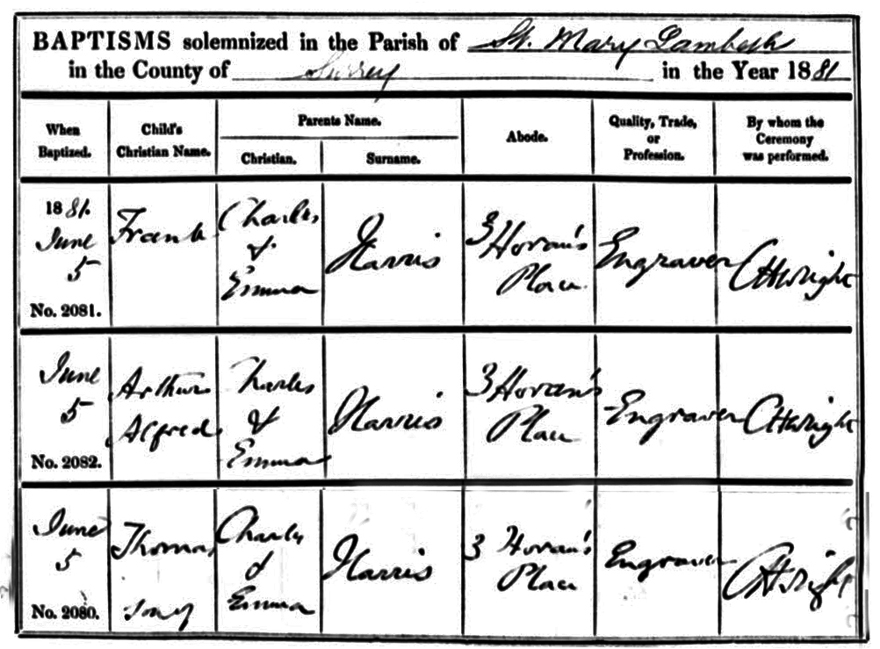 BAPTISMS solemnized in the Parish of St. Mary Lambeth
in the County of Surrey in the Year 1881
When Baptized.
Child's Christian Name.
Parents Name.
Christian.
Surname.
Abode.
Quality, Trade, or Profession.
By whom the Ceremony was performed.
1881.
June
5
No. 2081.
Frank
Charles
&
Emma
Harris
3
Place
Engraver
CHWright
June
5
No. 2082.
Arthur
Alfred
Charles
&
Emma
Harris
3
Place
Engraver
CHWright
June
5
No. 2080.
Thomas
Charles
&
Emma
Harris
3
Place
Engraver
CHWright